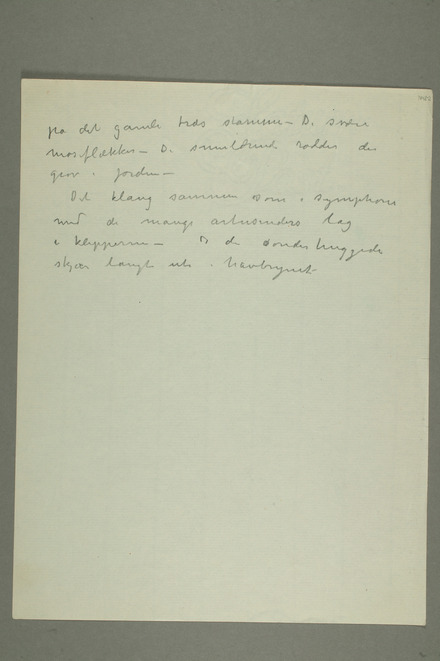 på det gamle træs stamme – De
mosflækker – De smuldrende rødder der
grov i jorden –
Det klang sammen som i symphoni
med de mange artusinders lag
i klipperne – de sønderhuggede
skjær langt ute i havbrynet